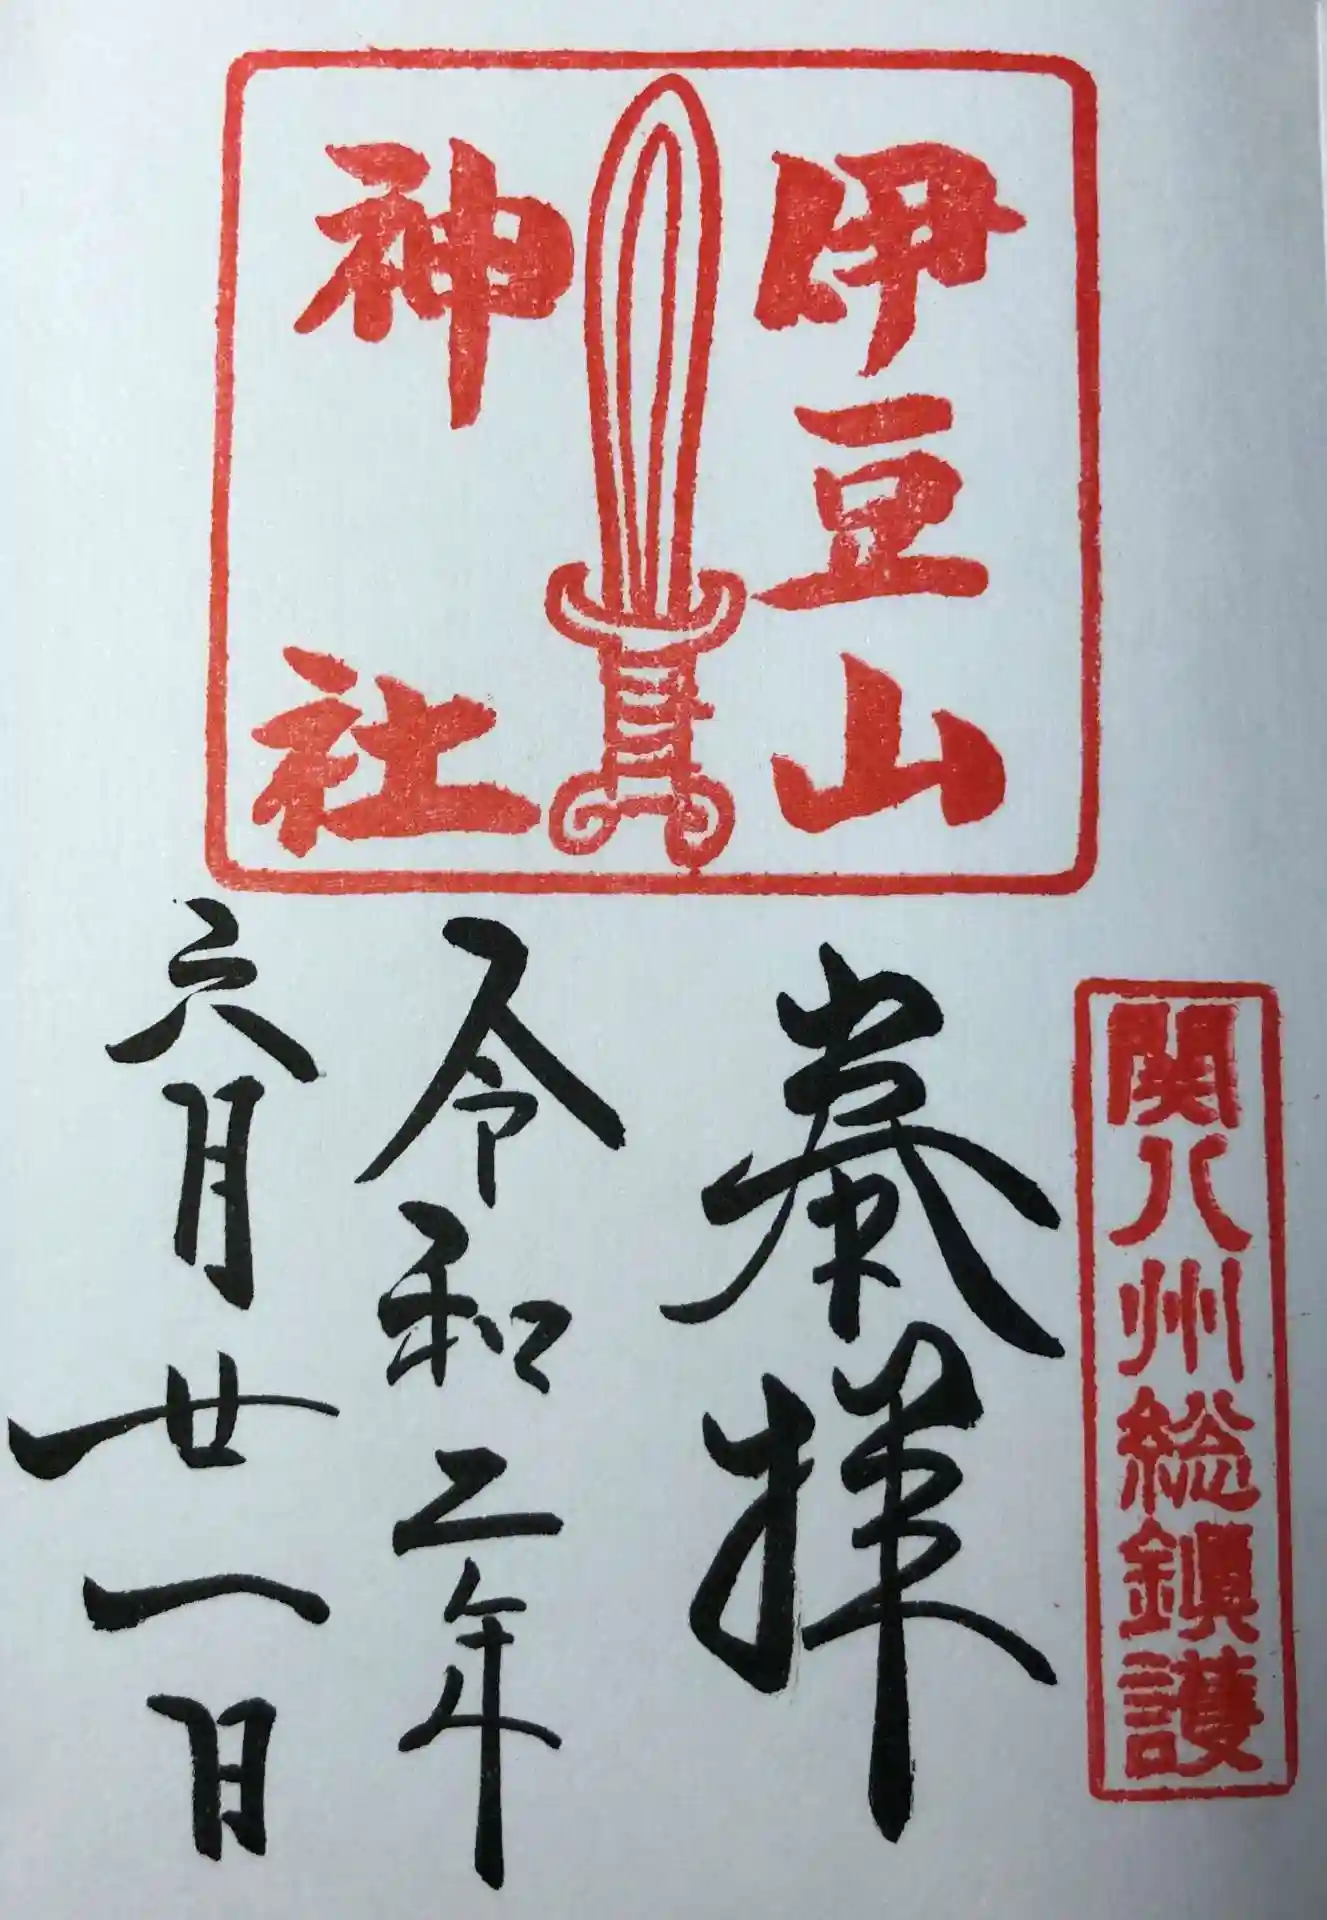 伊豆山
神社
関八州総鎮護
奉拝
令和二年
六月廿一日